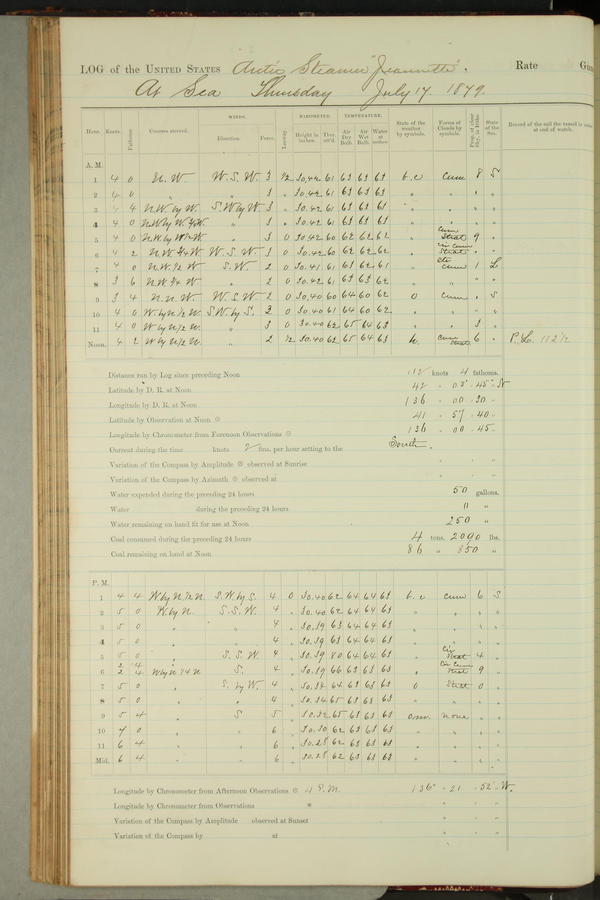 LOG of the UNITED STATES Arctic Steamer "Jeannette". Rate Gun
At Sea Thursday July 17 1879.
Hour. Knots. Fathoms. Courses steered. WINDS. Direction. Force. Leeway. BAROMETER. Height in inches. Ther. att'd. TEMPERATURE. Air Dry Bulb. Air Wet Bulb. Water at surface. State of the weather by symbols. Forms of Clouds by symbols. Prop. of clear sky, in 10ths. State of the Sea. Record of the sail the vessel is under at end of watch.
A. M.
1 4 0 N. W. W. S. W. 3 1/2 30.42 61 63 63 63 b. c. Cum 8 S
2 4 0 " " 3 " 30.42 61 63 63 63 " " " "
3 4 4 N.W. by W. S.W by W. 3 " 30.42 61 63 63 63 " " " "
4 4 0 " 3 " 30.42 61 63 63 63 " " " "
5 4 0 " 3 0 30.42 60 62 62 62 " Cum Strat 9 "
6 4 2 N.W. 3/4 W. W. S. W. 3 0 30.42 60 62 62 62 " Cir Cum Strat " "
7 4 0 N.W. 1/2 W. S. W. 2 0 30.41 61 63 62 61 " Cum 1 L
8 3 6 N.W. 3/4 W. " 2 0 30.42 61 63 63 62 " " " "
9 3 4 N. N. W. W. S. W 2 0 30.40 60 64 60 62 0 Cum " S
10 4 0 W. by N. 1/2 N. S.W. by S. 3 0 30.40 61 64 60 62 " " " "
11 4 0 W by N 1/2 N. " 3 0 30.40 62 65 64 63 " " 3 "
Noon. 4 2 W by N 1/2 N. " 2 1/2 30.40 62 65 64 63 Cum Strat 6 " P. L. 112 1/2
Distance run by Log since preceding Noon 112 knots 4 fathoms.
Latitude by D. R. at Noon 42 ° 03' 45" N
Longitude by D. R. at Noon 136 " 00 30 "
Latitude by Observation at Noon 41 " 57 40 "
Longitude by Chronometer from Forenoon Observations 136 " 00 45 "
Current during the time knots 2 fms. per hour setting to the South.
Variation of the Compass by Amplitude observed at Sunrise
Variation of the Compass by Azimuth observed at
Water expended during the preceding 24 hours 50 gallons.
Water during the preceding 24 hours 0 "
Water remaining on hand fit for use at Noon 250 "
Coal consumed during the preceding 24 hours 4 tons. 2090 lbs.
Coal remaining on hand at Noon 86 " 850 "
P. M.
1 4 4 W by N 1/2 N. S. W. by S. 4 0 30.40 62 64 64 63 b. c Cum 6 S
2 5 0 W. by N. S. S. W. 4 " 30.40 62 64 64 63 " " " "
3 5 0 " " 4 " 30.39 63 64 64 63 " " " "
4 5 0 " " 4 " 30.39 63 64 64 63 " " " "
5 5 0 " S. S. W. 4 " 30.39 80 64 64 63 " Cir Strat 4 "
6 2 4 2 4 W by N 3/4 N S. 4 " 30.39 66 63 63 63 " Cir Cum Strat 9 "
7 5 0 " S. by W. 4 " 64 63 63 63 0 Strat 0 "
8 5 0 " " 4 " 30.34 65 63 63 63 " " " "
9 5 4 " S 5 " 30.32 65 63 63 63 none " "
10 7 0 " " 6 " 30.30 62 63 63 63 " " " "
11 6 4 " " 6 " 30.28 62 63 63 63 " " " "
Mid. 6 4 " " 6 " 30.28 62 63 63 63 " " " "
Longitude by Chronometer from Afternoon Observations 4 P.M. 136 ° 21 52" W.
Longitude by Chronometer from Observations
Variation of the Compass by Amplitude observed at Sunset
Variation of the Compass by at